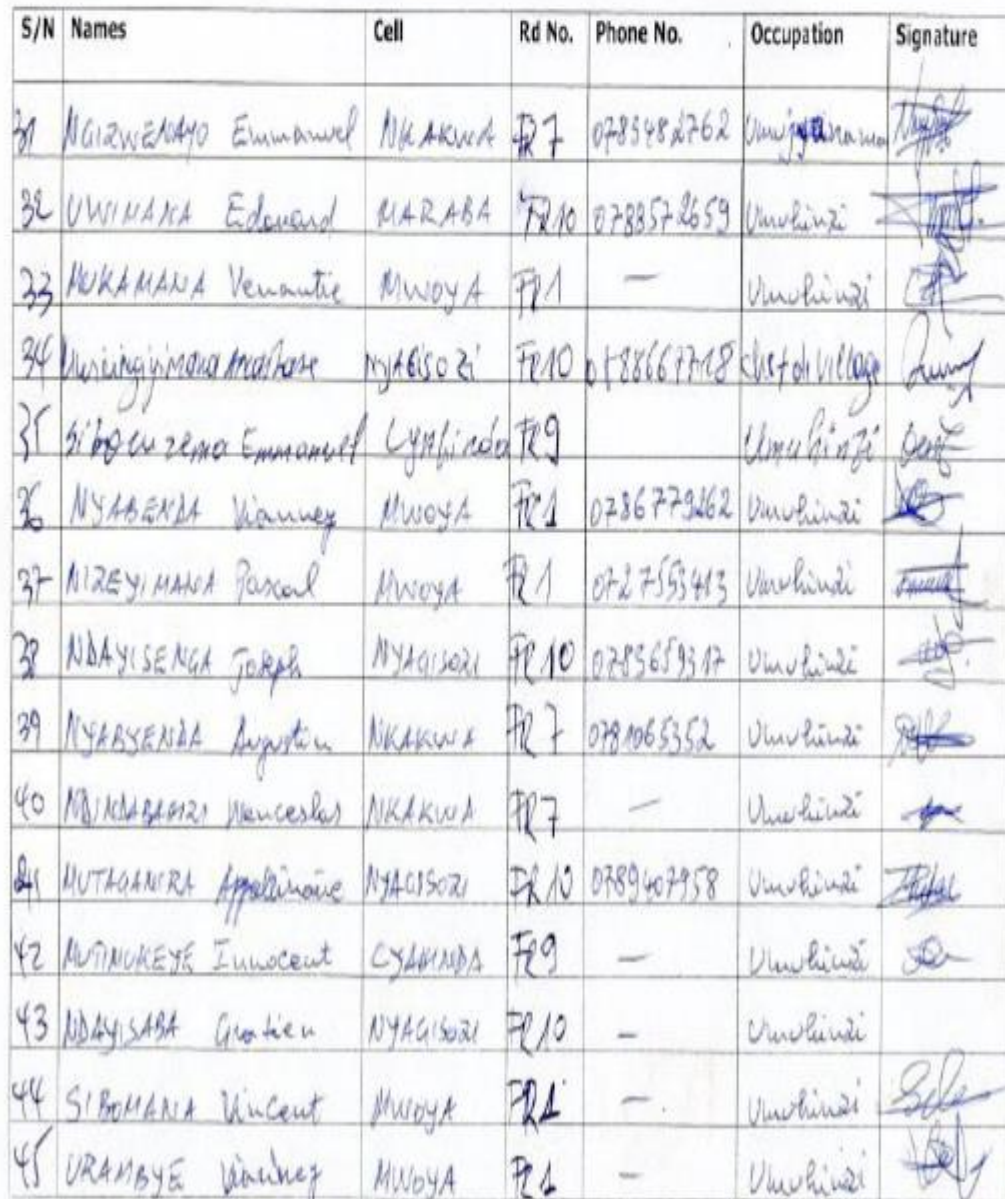 S/N Names Cell Rd No. Phone No. Occupation Signature
31 NGIZWENAYO Emmanuel NKAKWA FR7 0783482762
32 UWIMANA Edouard MARABA FR10 0788572659 Umuhinzi
33 MUKAMANA Venantie MWOYA FR1 — Umuhinzi
34 NYAGISOZI FR10 village
35 Emmanuel FR9 Umuhinzi
36 NYABENDA Vianney MWOYA FR1 0786779262 Umuhinzi
37 NIZEYIMANA Pascal MWOYA FR1 0727553413 Umuhinzi
38 NDAYISENGA Joseph NYAGISOZI FR10 0783659317 Umuhinzi
39 NYABYENDA Augustin NKAKWA FR7 0781065352 Umuhinzi
40 NDINDABAHIZI Wenceslas NKAKWA FR7 — Umuhinzi
41 MUTAGANIRA NYAGISOZI FR10 0789407958 Umuhinzi
42 MUTINUKEYE Innocent CYAHINDA FR9 — Umuhinzi
43 NDAYISABA Gratien NYAGISOZI FR10 — Umuhinzi
44 SIBOMANA Vincent MWOYA FR1 — Umuhinzi
45 URAMBYE Vianney MWOYA FR1 — Umuhinzi